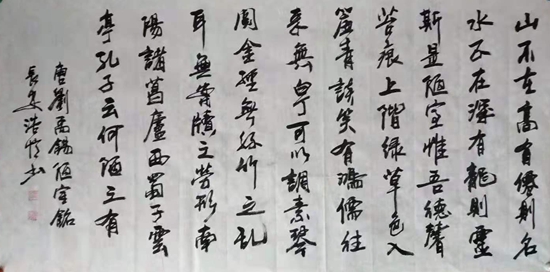 山不在高有僊則名
水不在深有龍則靈
斯是陋室惟吾德馨
苔痕上階綠草色入
簾青談笑有鴻儒往
來無白丁可以調素琴
閱金經無絲竹之亂
耳無案牘之勞形南
陽諸葛廬西蜀子雲
亭孔子云何陋之有
唐劉禹錫陋室銘
長安浩书